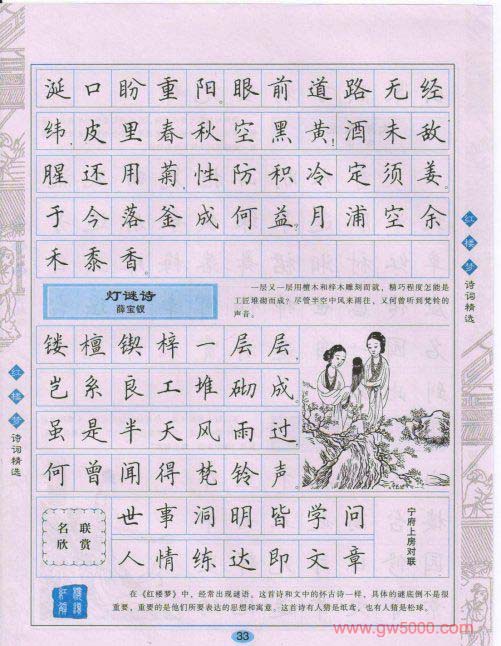 涎口盼重阳。眼前道路无经
纬，皮里春秋空黑黄！酒未敌
腥还用菊，性防积冷定须姜。
于今落釜成何益？月浦空余
禾黍香。
灯谜诗
薛宝钗
一层又一层用檀木和梓木雕刻而就，精巧程度怎能是
工匠堆砌而成？尽管半空中风来雨往，又何曾听到梵铃的
声音。
镂檀锲梓一层层，
岂系良工堆砌成。
虽是半天风雨过，
何曾闻得梵铃声。
名联
欣赏
世事洞明皆学问
人情练达即文章
宁府上房对联
在《红楼梦》中，经常出现谜语。这首诗和文中的怀古诗一样，具体的谜底倒不是很
重要，重要的是他们所要表达的思想和寓意。这首诗有人猜是纸鸢，也有人猜是松球。
红楼梦
诗词精选
红楼梦
诗词精选
33
www.gw5000.com